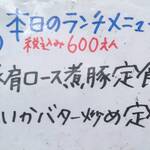 本日のランチメニュー
税込み600大人
豚肩ロース煮豚定食
いかバター炒め定